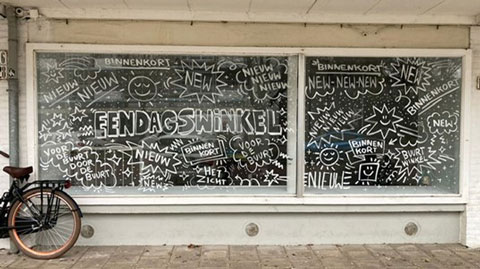 BINNENKORT
NIEUW
NIEUW
NEW
NIEUW
NIEUW
NIEUW
EENDAGSWINKEL
VOOR
BUURT
DOOR
BUURT
NIEUW
NEW
BINNEN
KORT
HET
IS
VOOR
BUURT
BINNENKORT
NEW-NEW-NEW
NEW
NIEUW
BINNENKORT
NEW
BINNEN
KORT
BUURT
WINKEL
NIEUW